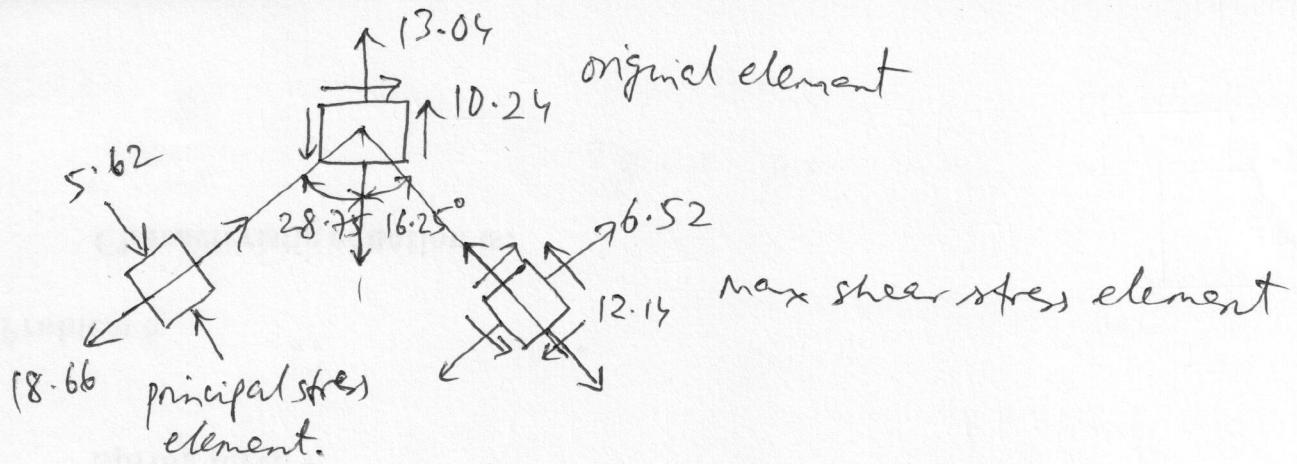 13.04
original element
10.24
5.62
28.75 16.25°
6.52
12.14
max shear stress element
18.66
principal stress
element.